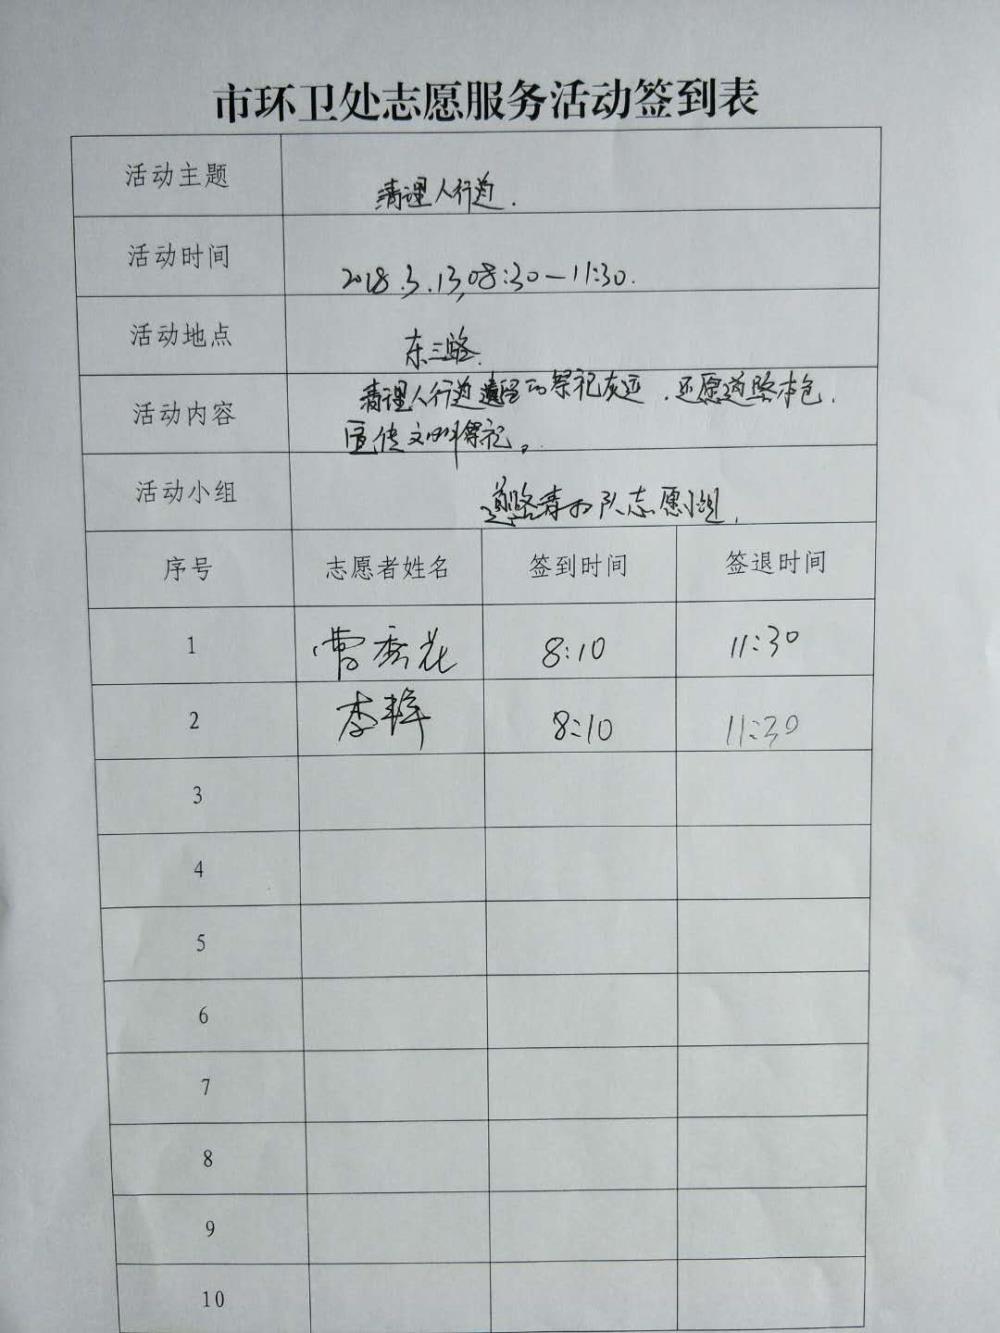 市环卫处志愿服务活动签到表
活动主题 清理人行道.
活动时间 2018.3.13,08:30—11:30.
活动地点 东三路.
活动内容 清理人行道遗留的祭祀灰迹.还愿道路本色.
宣传文明祭祀。
活动小组 道路清扫队志愿小组.
序号 志愿者姓名 签到时间 签退时间
1 曹秀花 8:10 11:30
2 李 8:10 11:30
3
4
5
6
7
8
9
10